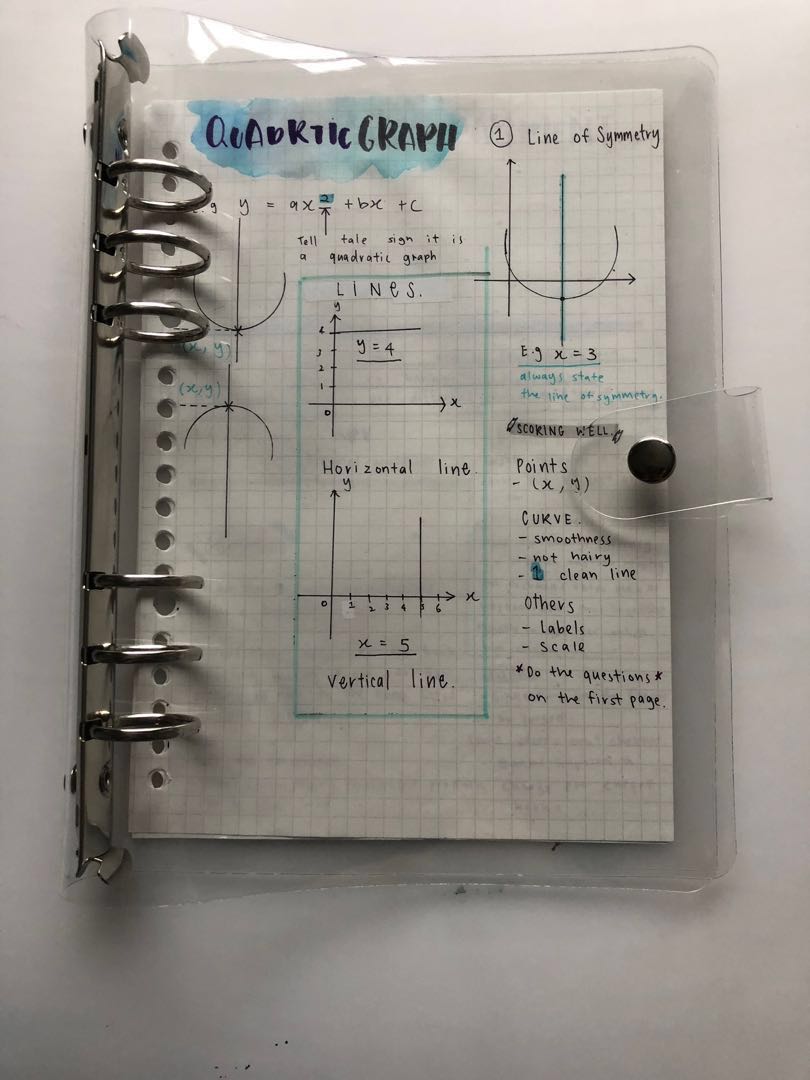 QUADRTIC GRAPH
E.g y = ax² + bx + c
Tell tale sign it is
a quadratic graph
(x, y)
(x,y)
LINES.
y
4
3
2
1
0
x
y = 4
Horizontal line.
y
0 1 2 3 4 5 6 x
x = 5
vertical line.
① Line of Symmetry
E.g x = 3
always state
the line of symmetry.
SCORING WELL
Points
- (x, y)
CURVE.
- smoothness
- not hairy
- 1 clean line
Others
- Labels
- Scale
*Do the questions*
on the first page.